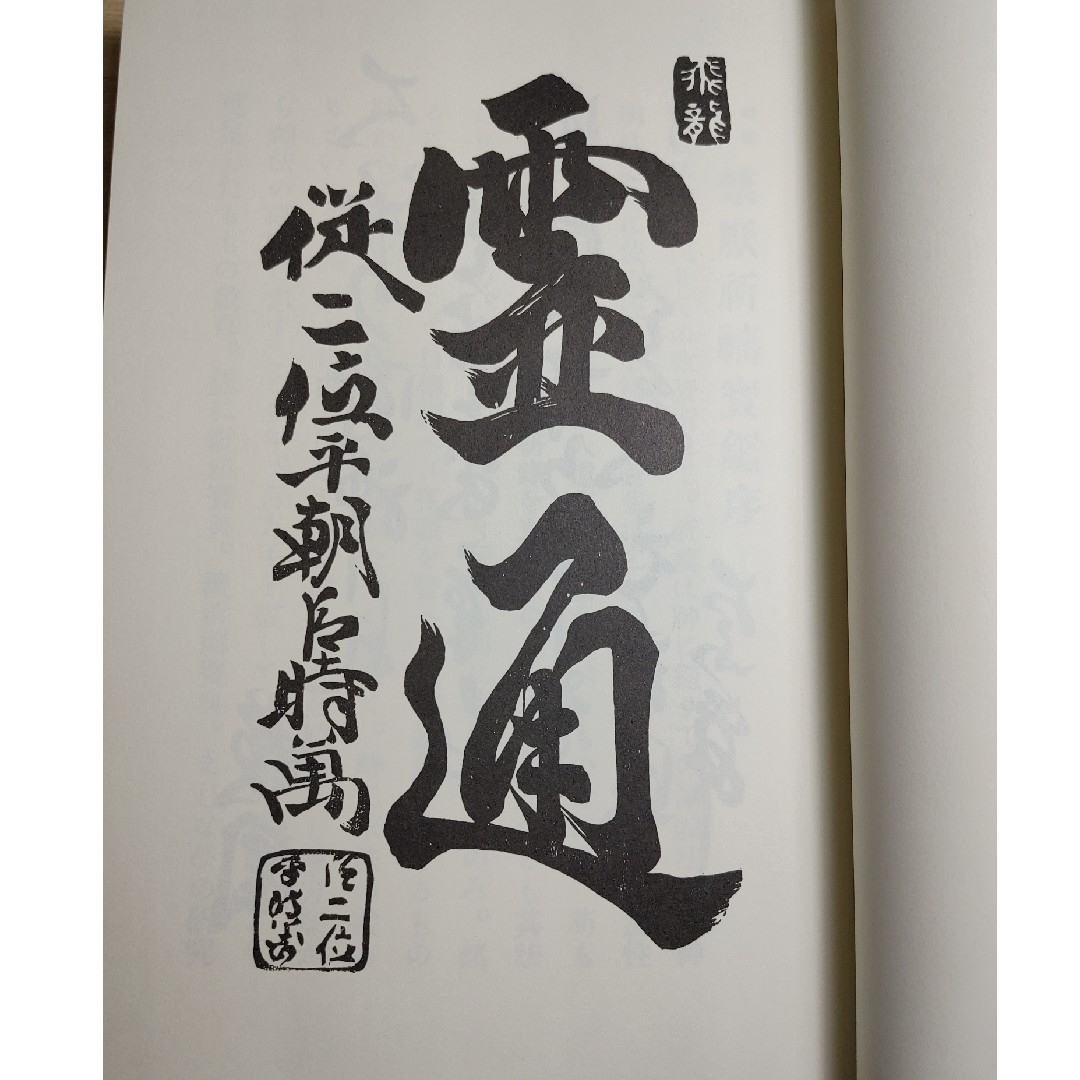 飛龍
霊通
従二位平朝臣時萬
従二位
平時萬